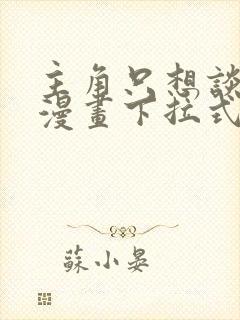 主角只想談
漫畫下拉式
蘇小晏